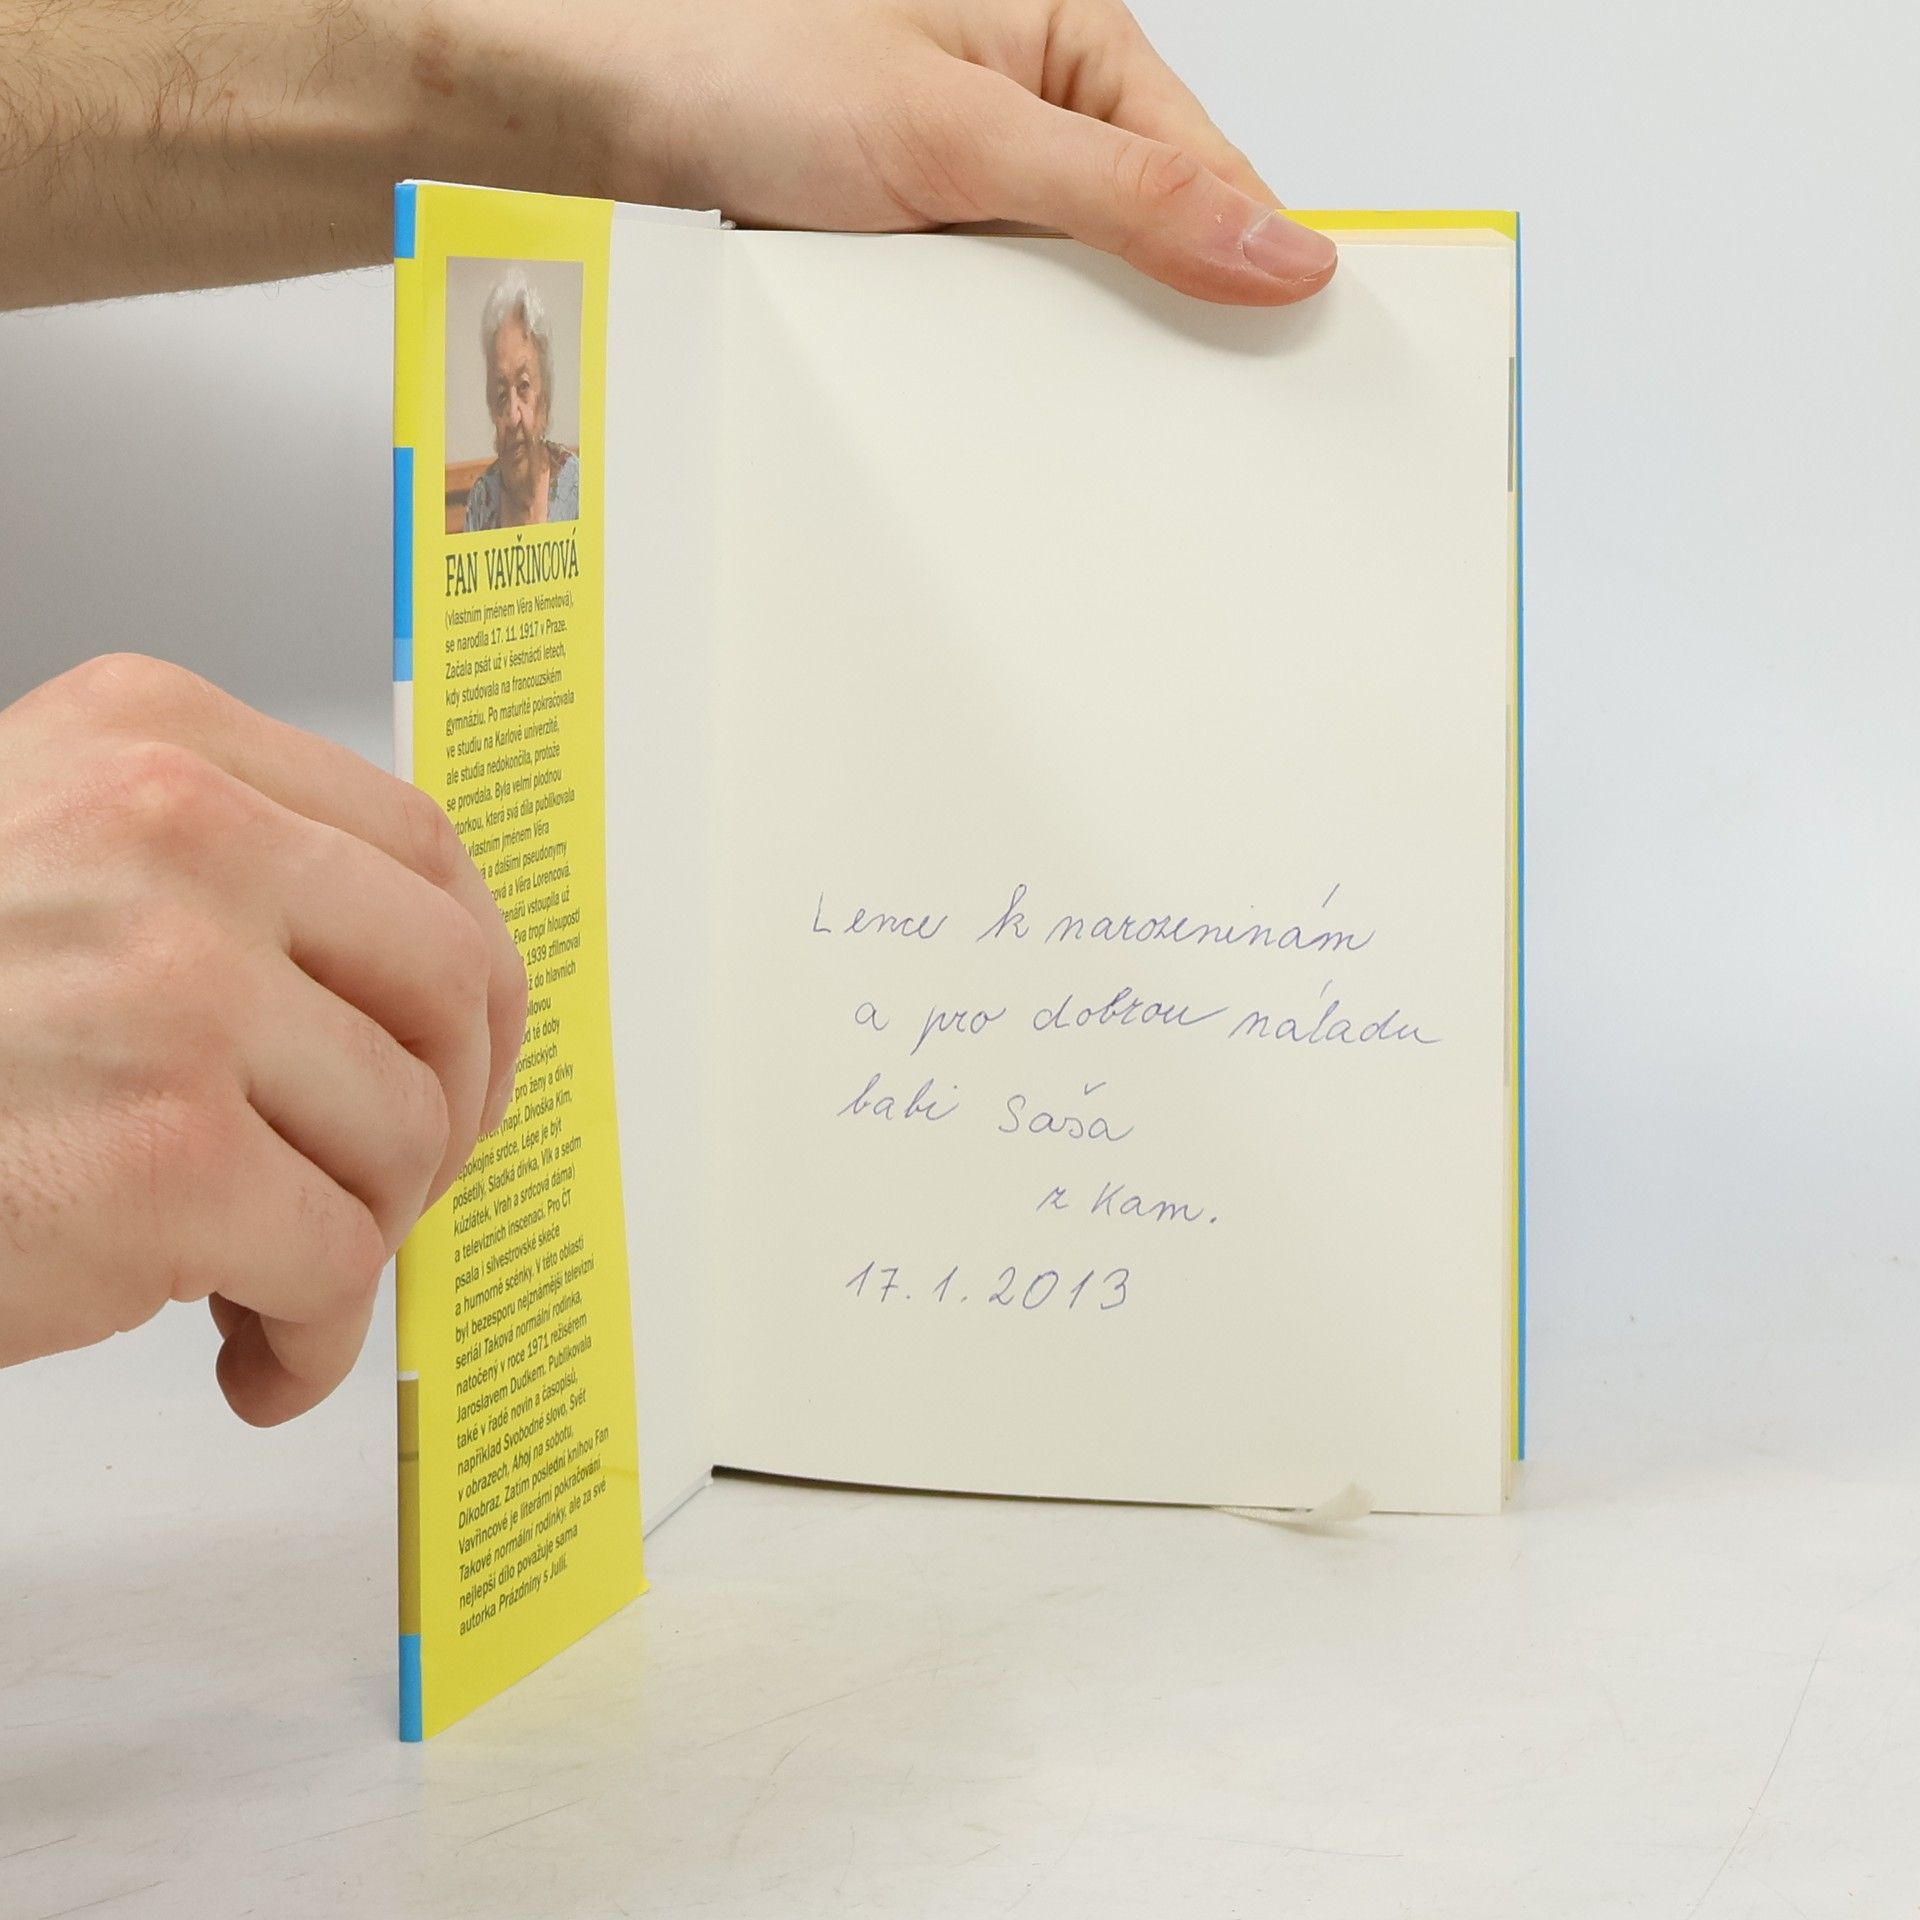 FAN VAVŘINCOVÁ
(vlastním jménem Věra Němotová),
se narodila 17. 11. 1917 v Praze.
Začala psát už v šestnácti letech,
kdy studovala na francouzském
gymnáziu. Po maturitě pokračovala
ve studiu na Karlově univerzitě,
ale studia nedokončila, protože
se provdala. Byla velmi plodnou
torkou, která svá díla publikovala
vlastním jménem Věra
á a dalšími pseudonymy
cová a Věra Lorencová.
tenářů vstoupila už
Eva tropí hlouposti
1939 zfilmoval
ž do hlavních
llovou
od té doby
oristických
pro ženy a dívky
(např. Divoška Kim,
epokojné srdce, Lépe je být
pošetilý, Sladká dívka, Vlk a sedm
kůzlátek, Vrah a srdcová dáma)
a televizních inscenací. Pro ČT
psala i silvestrovské skeče
a humorné scénky. V této oblasti
byl bezesporu nejznámější televizní
seriál Taková normální rodinka,
natočený v roce 1971 režisérem
Jaroslavem Dudkem. Publikovala
také v řadě novin a časopisů,
například Svobodné slovo, Svět
v obrazech, Ahoj na sobotu,
Dikobraz. Zatím poslední knihou Fan
Vavřincové je literární pokračování
Takové normální rodinky, ale za své
nejlepší dílo považuje sama
autorka Prázdniny s Julií.
Lence k narozeninám
a pro dobrou náladu
babi Saša
z Kam.
17. 1. 2013